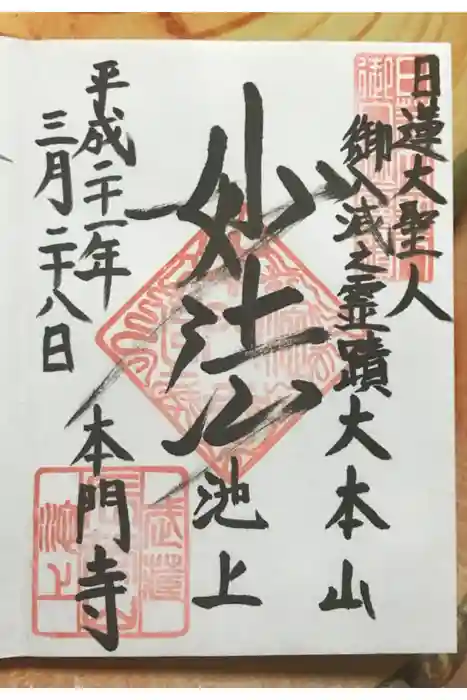 日蓮大聖人
御入滅之霊蹟大本山
妙法
池上
本門寺
平成二十一年
三月二十八日
武蔵
池上